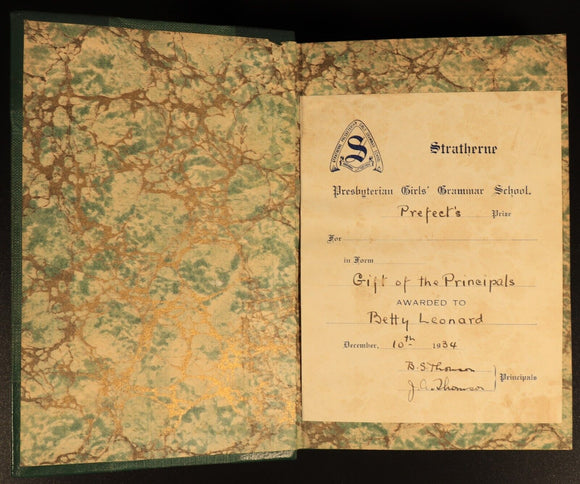 S
Stratherne
Presbyterian Girls' Grammar School.
Prefect's Prize
For
in Form
Gift of the Principals
AWARDED TO
Betty Leonard
December, 10th 1934
B. S. Thomson
J. A. Thomson
Principals